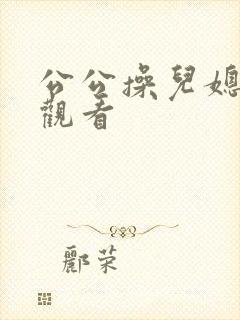 公公操兒媳
觀看
酈荣